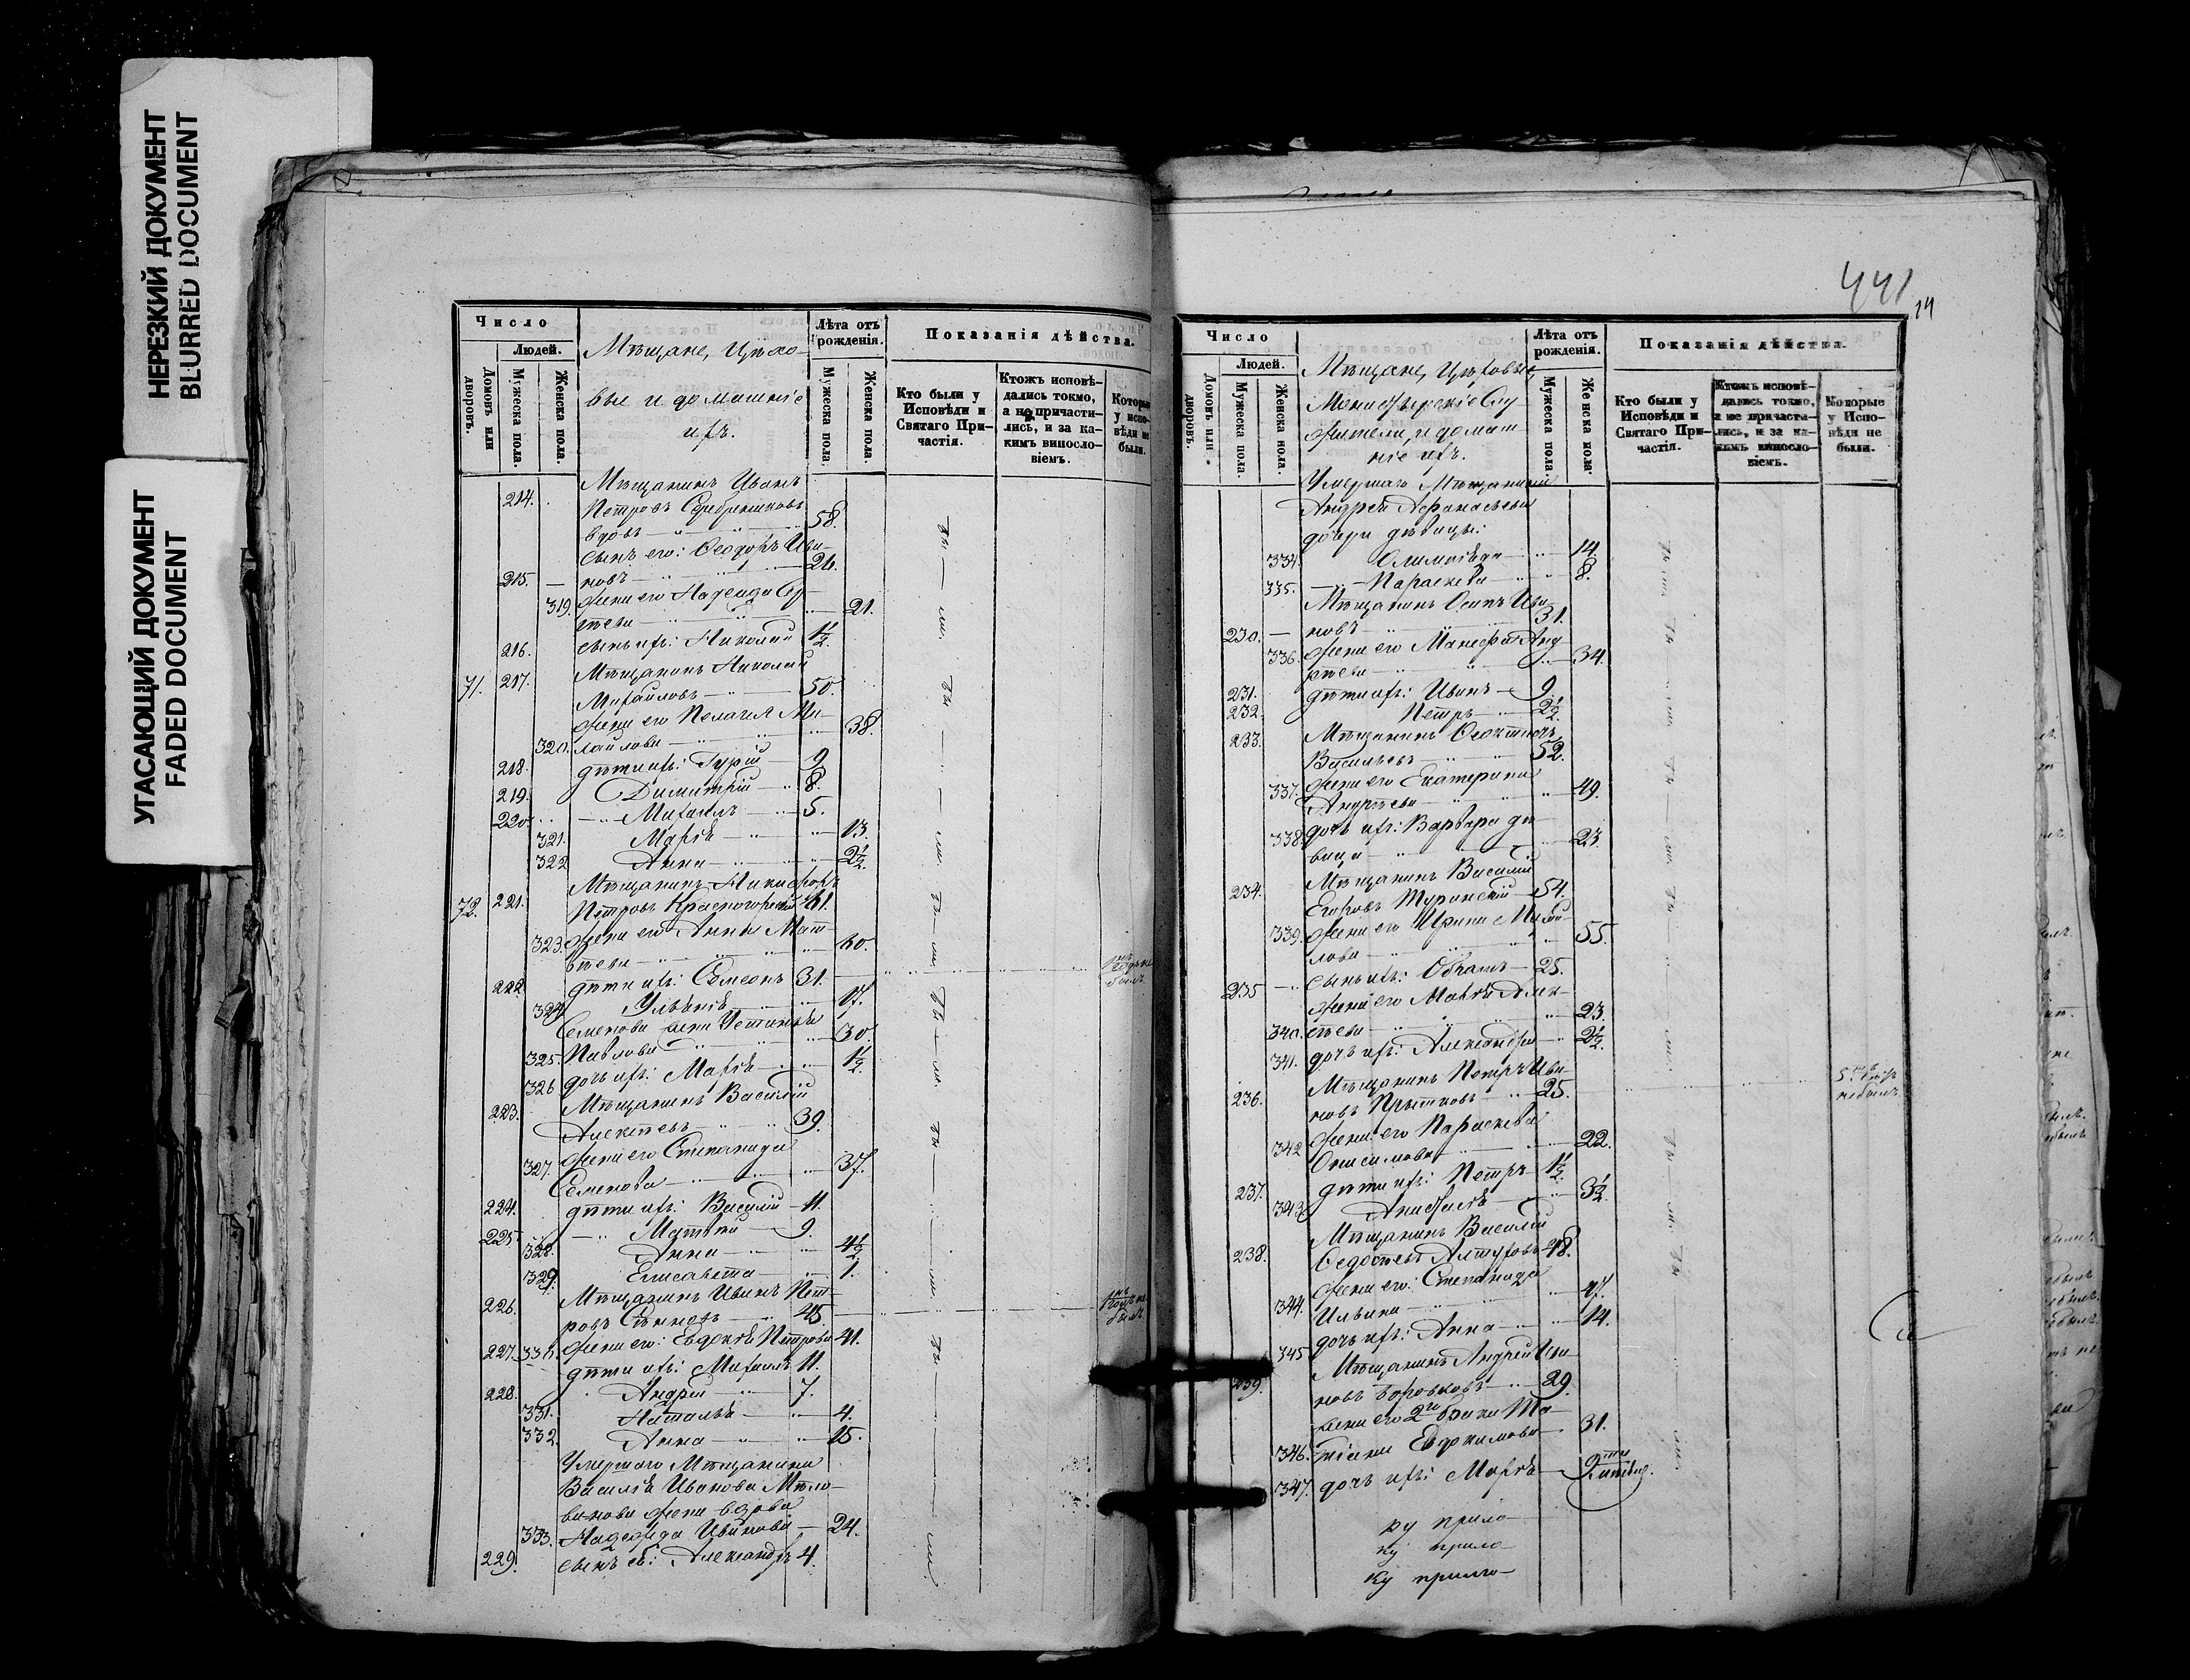 НЕРЕЗКИЙ ДОКУМЕНТ
BLURRED DOCUMENT
УГАСАЮЩИЙ ДОКУМЕНТ
FADED DOCUMENT
Число
Людей.
Домовъ или дворовъ.
Мужеска пола.
Женска пола.
Мѣщане, Цѣхо-
вые и домашніе
ихъ.
Лѣта отъ рожденія.
Мужеска пола.
Женска пола.
Показанія дѣйства.
Кто были у Исповѣди и Святаго Причастія.
Ктожъ исповѣ-
дались токмо,
а не причасти-
лись, и за ка-
кимъ винословіемъ.
Которые
у испо-
вѣди не
были.
Мѣщанинъ Иванъ
214. Петровъ Серебрениковъ
вдовъ 58.
сынъ его: Ѳеодоръ Ива-
215. новъ 26.
жена его Надежда Сер-
319. гѣева 21.
216. сынъ ихъ: Николай 1½
Мѣщанинъ Николай
71. 217. Михайловъ 50.
жена его Пелагея Ми-
320. хайлова 38.
218. дѣти ихъ: Гурій 9
219. Димитрій 8.
220. Михаилъ 5.
321. Марѳа 13.
322 Анна 2½
Мѣщанинъ Никифоръ
72. 221. Петровъ Красногорскій 61.
323. жена его Анна Мат-
вѣева 60.
222. дѣти ихъ: Семеонъ 31.
324. Ульянія 17.
Семенова жена Устинья
325. Павлова 30.
326 дочь ихъ: Марѳа 1½
Мѣщанинъ Василій
223. Алексѣевъ 39.
327. жена его Степанида
Семенова 37.
224. дѣти ихъ: Василій 11.
225. Матвѣй 9.
328. Анна 4½
329. Елисавета 1.
Мѣщанинъ Иванъ Пет-
226. ровъ 45
330. жена его: Евдокія Петрова 41.
227. дѣти ихъ: Михаилъ 11.
228. Андрей 7.
331. Наталья 4.
332. Анна 15.
Умершаго Мѣщанина
Василія Иванова
жена вдова
333. Надежда Иванова 24.
229. сынъ ея: Александръ 4.
441
Число
Людей.
Домовъ или дворовъ.
Мужеска пола
Женска пола.
Мѣщане, Цѣховые,
Монастырскіе Слу
жители, и домаш
ніе ихъ.
Лѣта отъ рожденія.
Мужеска пола.
Женска пола.
Показанія дѣйства.
Кто были у Исповѣди и Святаго Причастія.
Ктожъ исповѣ-
дались токмо,
а не причасти-
лись, и за ка-
кимъ винословіемъ.
Которые
у Испо-
вѣди не
были.
Умершаго Мѣщанина
Андрея Афанасьева
дочери дѣвицы:
334. Олимпіада 14.
335. Параскева 8.
Мѣщанинъ Осипъ Ива-
230. новъ 31.
336. жена его Манефа Анд-
рѣева 34.
231. дѣти ихъ: Иванъ 9
232. Петръ 2½
233. Мѣщанинъ Ѳеоктистъ
Васильевъ 52.
337. жена его Екатерина
Андрѣева 49.
338. дочь ихъ: Варвара дѣ-
вица 23
Мѣщанинъ Василій
234. Егоровъ Туринскій 54.
339. жена его Ирина Михай-
лова 55.
235 сынъ ихъ: 25.
жена его Марѳа Алек-
340. сѣева 23.
341. дочь ихъ: Александра 2½
Мѣщанинъ Петръ Ива-
236. новъ Прытковъ 25.
342 жена его Параскева
Онисимова 22.
237. дѣти ихъ: Петръ 1½
343. Анисія 3½
Мѣщанинъ Василій
238. Ѳедотьевъ 48.
жена его: Степанида
344. Ильина 47.
345 дочь ихъ: Анна 14.
Мѣщанинъ Андрей Ива
239. новъ Боровковъ 29.
жена его 2го брака Та-
346. тіана Евдокимова 31.
347. дочь ихъ: Марѳа